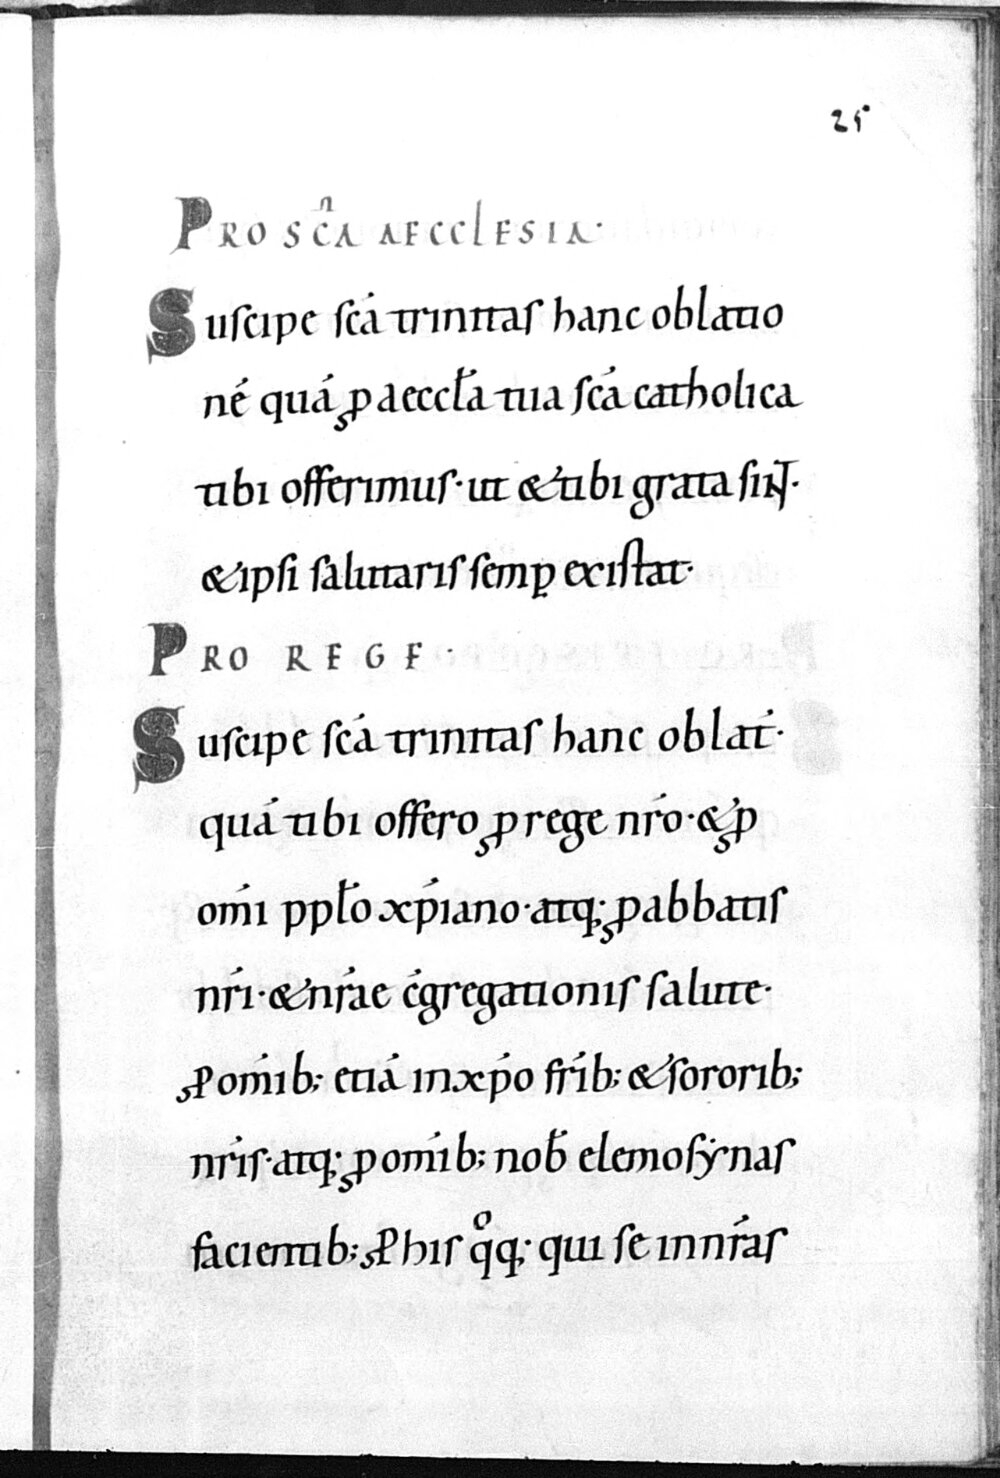 25
PRO SC̄A AECCLESIA·
Suscipe sc̄a trinitas hanc oblatio
nē quā ꝓ aeccl̄a tua sc̄a catholica
tibi offerimus· ut &tibi grata sit·
&ipsi salutaris semp̱ existat·
PRO REGE·
Suscipe sc̄a trinitas hanc oblat̄·
quā tibi offero ꝓ rege nr̄o· &ꝓ
om̄i ppl̄o xp̄iano· atq; ꝓ abbatis
nr̄i· &nr̄ae c̄gregationis salute·
ꝓ om̄ib; etiā in xp̄o fr̄ib; &sororib;
nr̄is· atq; ꝓ om̄ib; nob̄ elemosẏnas
facientib; ꝓ his qͦq; qui se in nr̄as